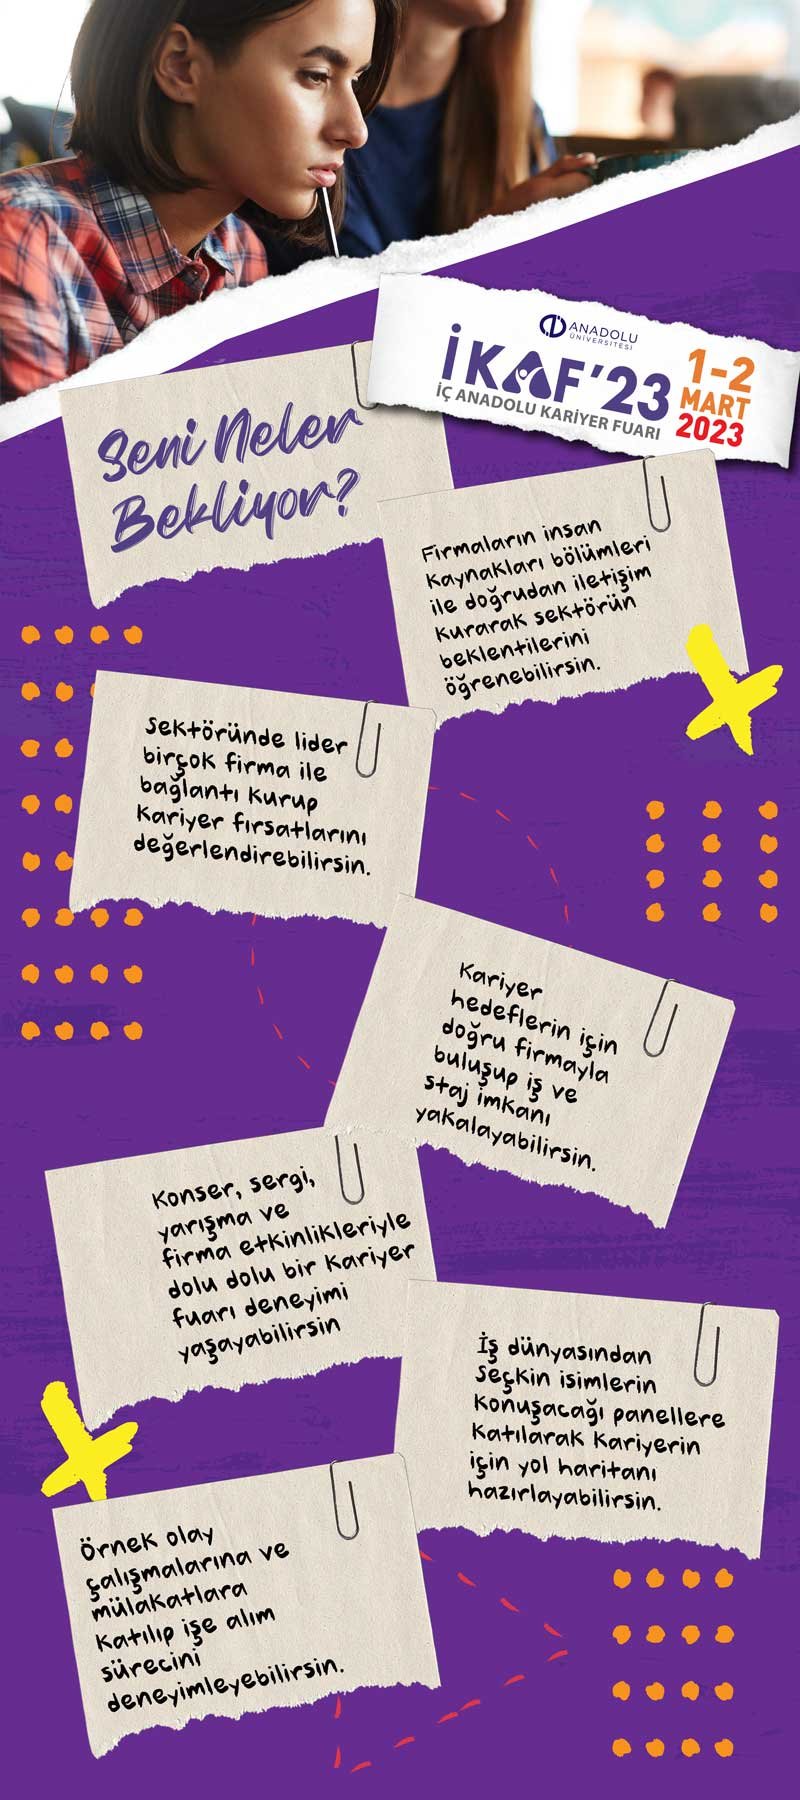 ANADOLU
ÜNİVERSİTESİ
İKAF'23
İÇ ANADOLU KARİYER FUARI
1-2
MART
2023
Seni Neler
Bekliyor?
Firmaların insan
kaynakları bölümleri
ile doğrudan iletişim
kurarak sektörün
beklentilerini
öğrenebilirsin.
Sektöründe lider
birçok firma ile
bağlantı kurup
kariyer fırsatlarını
değerlendirebilirsin.
Kariyer
hedeflerin için
doğru firmayla
buluşup iş ve
staj imkanı
yakalayabilirsin.
Konser, sergi,
yarışma ve
firma etkinlikleriyle
dolu dolu bir kariyer
fuarı deneyimi
yaşayabilirsin
İş dünyasından
seçkin isimlerin
konuşacağı panellere
katılarak kariyerin
için yol haritanı
hazırlayabilirsin.
Örnek olay
çalışmalarına ve
mülakatlara
katılıp işe alım
sürecini
deneyimleyebilirsin.